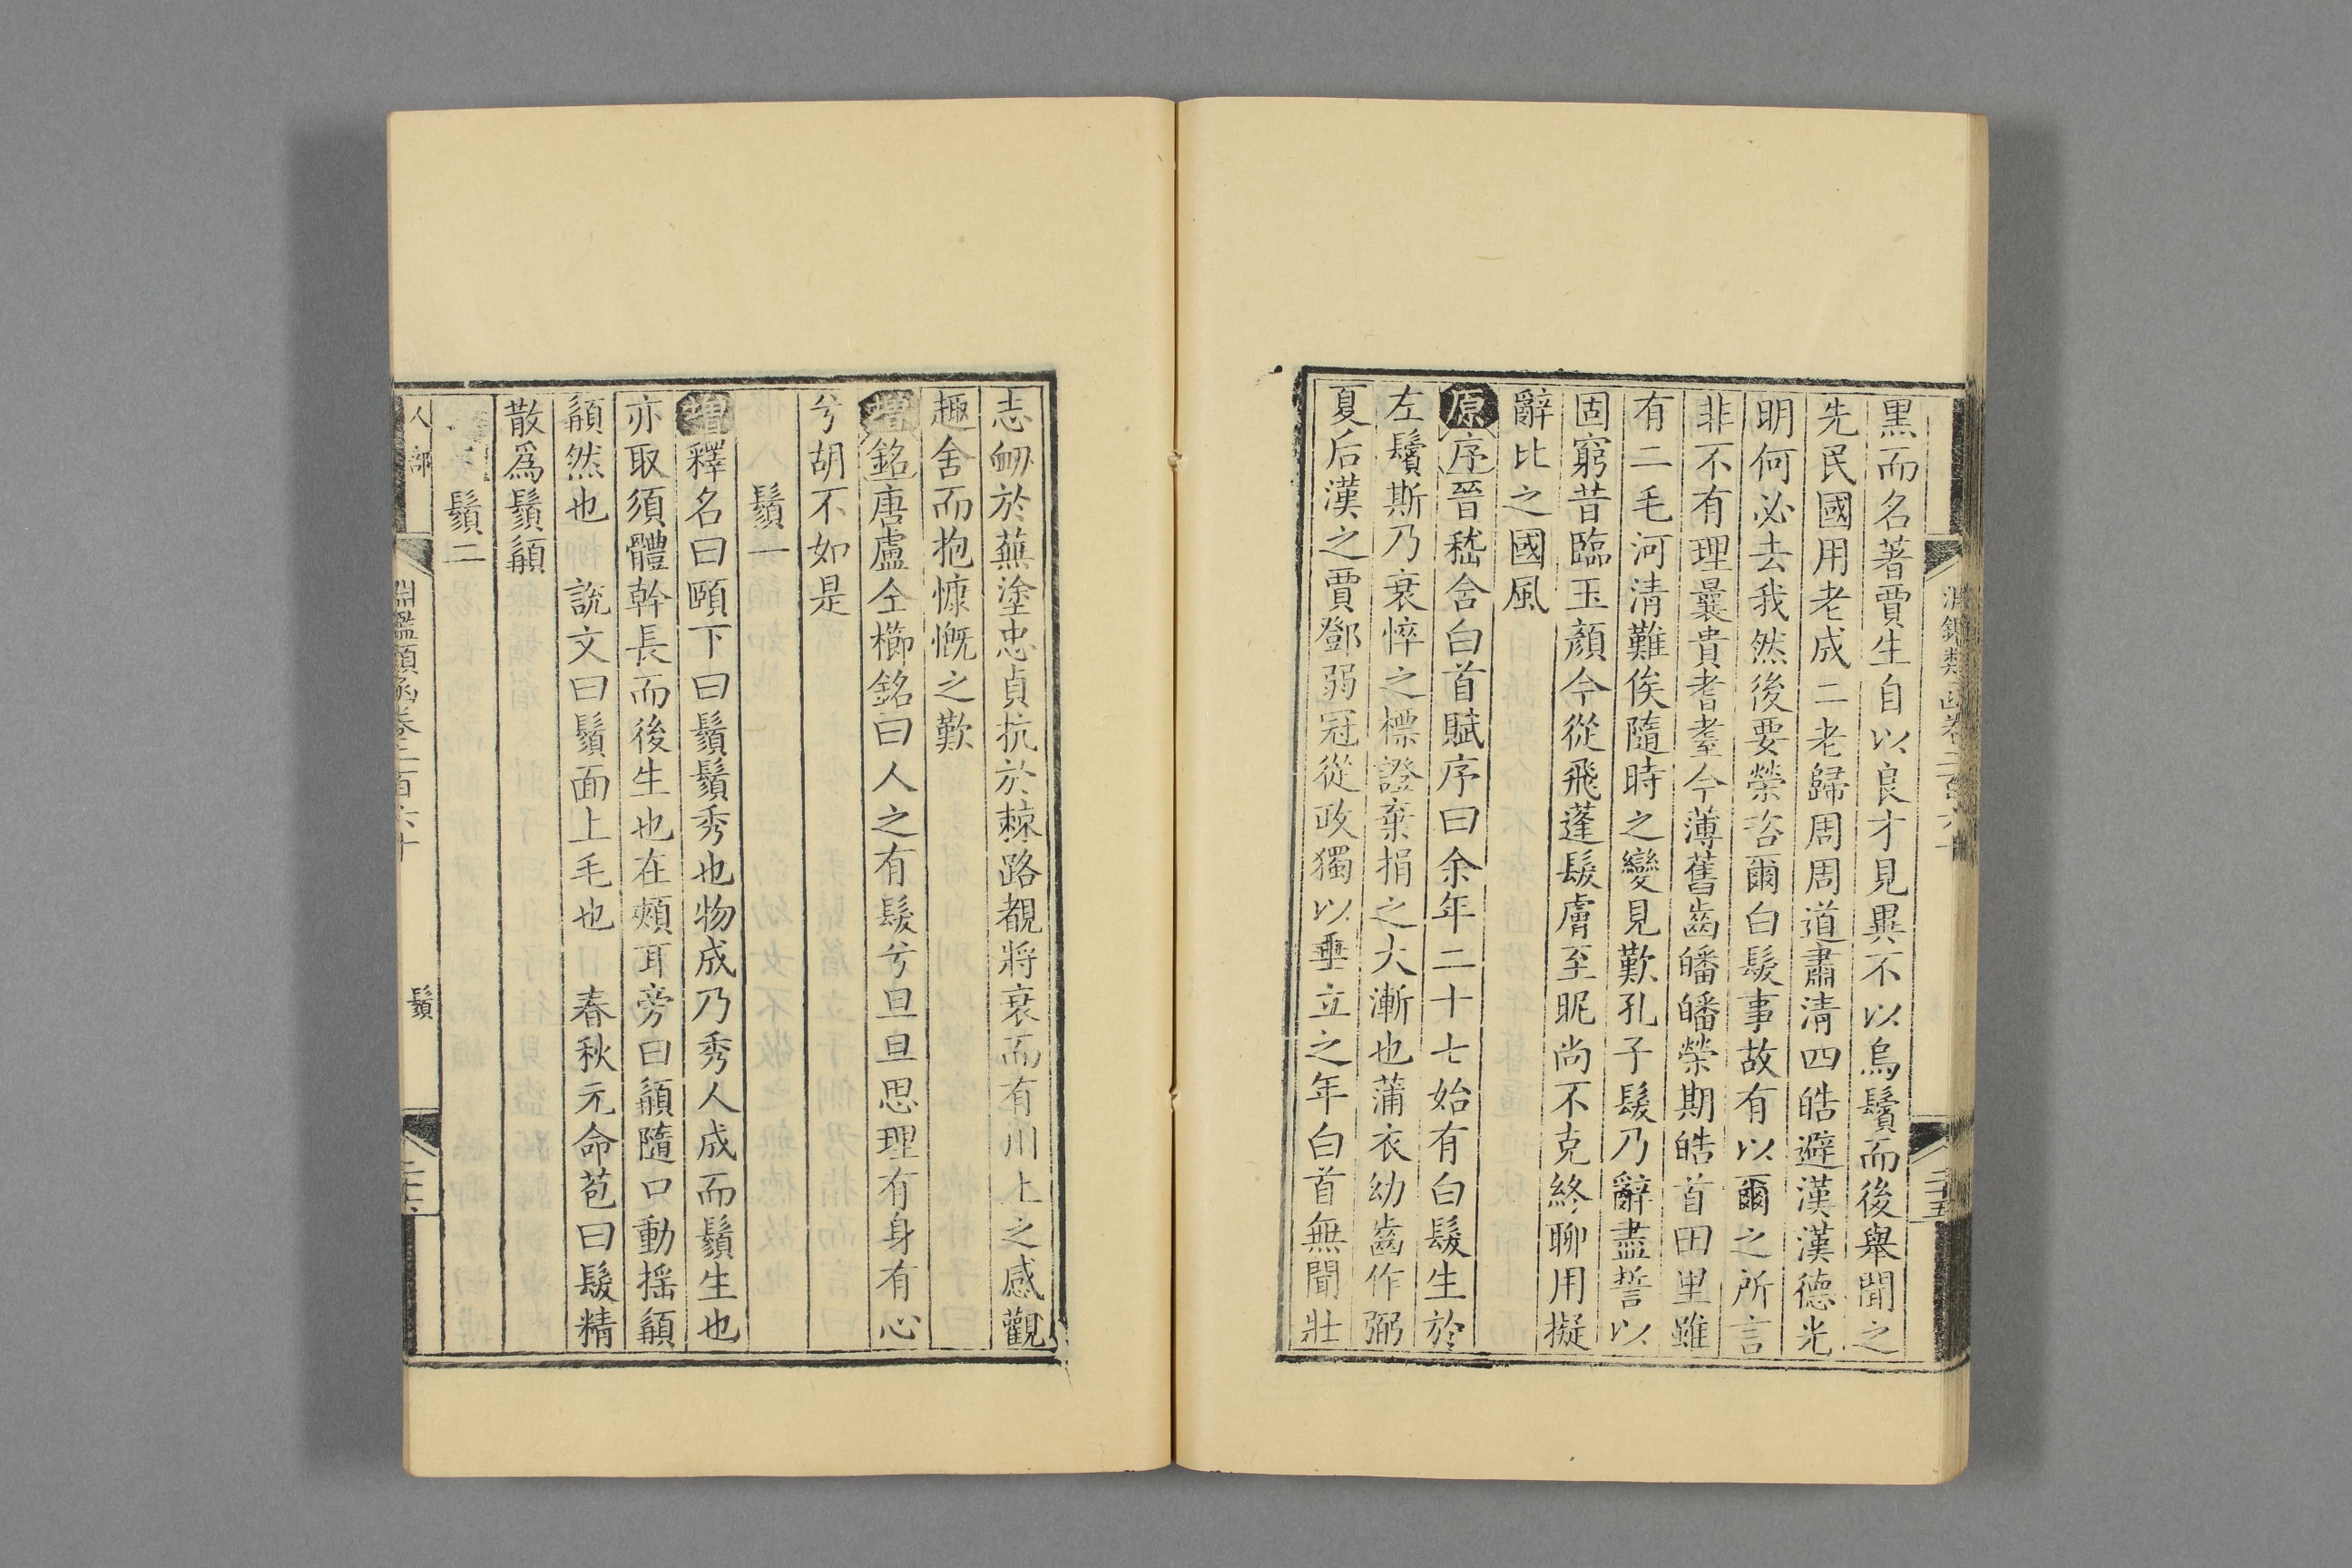 黑而名著賈生自以良才見異不以烏鬢而後舉聞之
先民國用老成二老歸周周道肅清四皓避漢漢德光
明何必去我然後要榮咨爾白髮事故有以爾之所言
非不有理曩貴耆耋今薄舊齒皤皤榮期皓首田里雖
有二毛河清難俟隨時之變見歎孔子髮乃辭盡誓以
固窮昔臨玉顏今從飛蓬髮膚至昵尚不克終聊用擬
辭比之國風
原序晉嵇含白首賦序曰余年二十七始有白髮生於
左鬢斯乃衰悴之標證棄捐之大漸也蒲衣幼齒作弼
夏后漢之賈鄧弱冠從政獨以垂立之年白首無聞壯
志衂於蕪塗忠貞抗於棘路覩將衰而有川上之感觀
趣舍而抱慷慨之歎
增銘唐盧仝櫛銘曰人之有髮兮旦旦思理有身有心
兮胡不如是
鬚一
增釋名曰頤下曰鬚鬚秀也物成乃秀人成而鬚生也
亦取須體幹長而後生也在頰耳旁曰髥隨口動揺髥
髥然也 說文曰鬚面上毛也 春秋元命苞曰髮精
散爲鬚髥
鬚二
人部 淵鑑類函卷二百六十 鬚